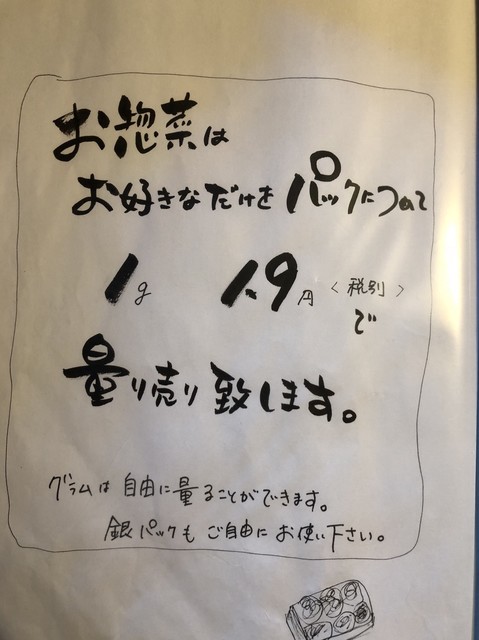 お惣菜は
お好きなだけをパックにつめて
1g 1.9円〈税別〉
で
量り売り致します。
グラムは自由に量ることができます。
銀パックもご自由にお使い下さい。